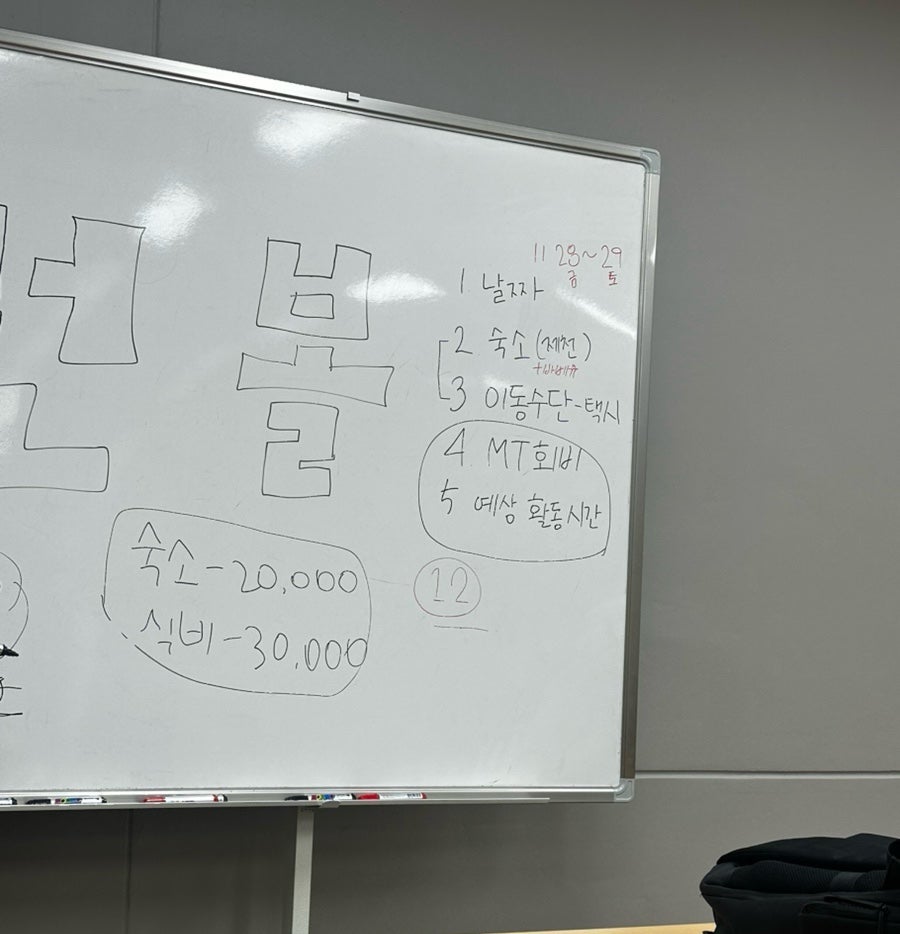 불
11 28~29
금 토
1 날짜
2 숙소(제천)
+바베큐
3 이동수단-택시
4 MT회비
5 예상 활동시간
숙소-20,000
식비-30,000
12